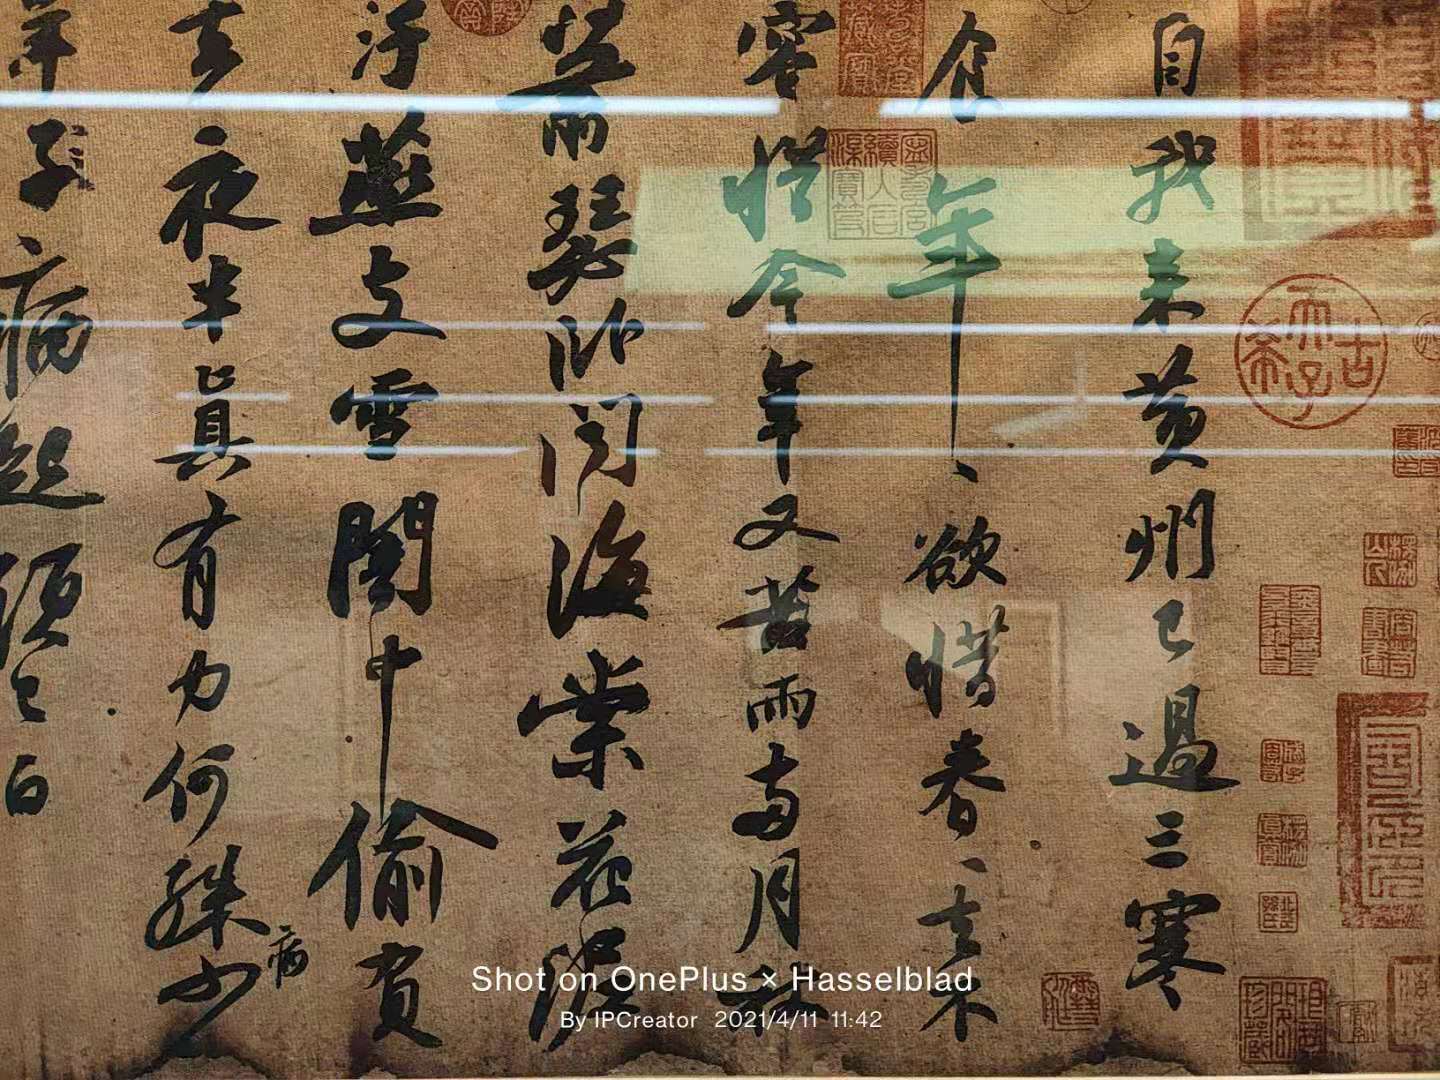 自我来黄州已過三寒
食年〻欲惜春〻去不
容惜今年又苦雨兩月秋
蕭瑟卧聞海棠花泥
汙燕支雪闇中偷負
去夜半真有力何殊病少
年子病起頭已白
古希天子
Shot on OnePlus × Hasselblad
By IPCreator 2021/4/11 11:42